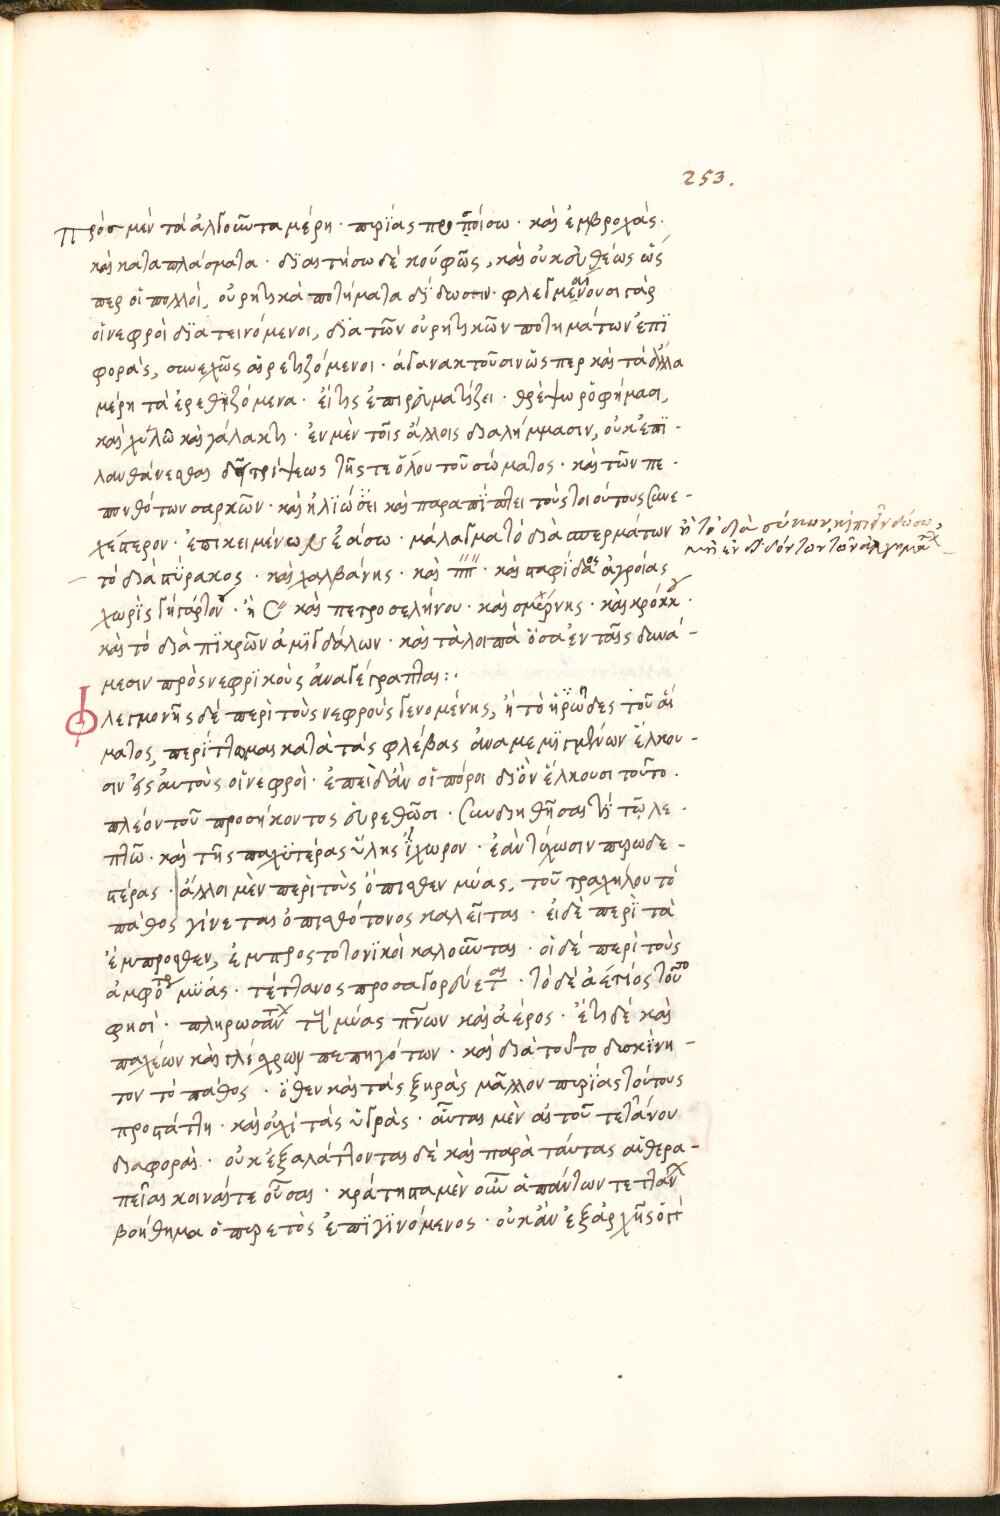 253.
πρὸσ μὲν τὰ ἀλγοῦντα μέρη · πυρίας προποίσω · καὶ ἐμβροχὰς ·
καὶ καταπλάσματα · διαστήσω δὲ κούφως, καὶ οὐκ εὐθέως ὥς
περ οἱ πολλοί, οὐρητικὰ ποτήματα δίδωσιν · φλεγμαίνουσι γὰρ
οἱ νεφροὶ διατεινόμενοι, διὰ τῶν οὐρητικῶν ποτημάτων ἐπϊ
φορὰς, συνεχῶς αἱρετιζόμενοι · ἀγανακτοῦσιν ὥς περ καὶ τὰ ἄλλα
μέρη τὰ ἐρεθϊζόμενα · εἴ τις ἐπιρευματίζει · θρέψω ῥοφήμασι,
καὶ χυλῶ καὶ γάλακτι · ἐν μὲν τοῖς ἄλλοις διαλήμμασιν, οὐκ ἐπϊ -
λανθάνεσθαι δεῖ τρίψεως τῆς τε ὅλου τοῦ σώματος · καὶ τῶν πε ·
πονθότων σαρκῶν · καὶ ἡλϊώσϊει καὶ παραπϊπτει τοὺς τοιούτους συνε -
χέστερον · ἐπικειμένως ἐάσω · μάλαγμα τὸ διὰ σπερμάτων ἢ τὸ διὰ σύκων, κἤπιον δώσω,
μὴ ἐνδιδόντων τῶν ἀλγημάτων
τὸ διὰ πύρακος · καὶ χαλβάνης · καὶ · καὶ σταφίδος ἀγρίας
χωρὶς γιγάρτου · ἢ καὶ πετροσελήνου · καὶ σμύρνης · καὶ κρόκου ·
καὶ τὸ διὰ πϊκρῶν ἀμϊγδάλων · καὶ τὰ λοιπὰ ὅσα ἐν ταῖς δυνά -
μεσιν πρὸς νεφρϊκοὺς ἀναγέγραπται : ·
Φλεγμονῆς δὲ περὶ τοὺς νεφροὺς γενομένης, ἢ τὸ ἰχῶρῶδες τοῦ αἵ
ματος, περίττωμα κατὰ τὰς φλέβας ἀναμεμϊγμένων ἕλκου -
σιν εἰς ἑαυτοὺς οἱ νεφροὶ · ἐπειδὰν οἱ πόροι δϊ ὃν ἕλκουσι τοῦτο ·
πλέον τοῦ προσήκοντος εὑρεθῶσι · συνδιηθῆσαι τῇ τῷ λε -
πτῶ · καὶ τῆς παχϋτέρας ὕλης ἰχωρον · ἐὰν τύχωσιν πυωδε -
στέρας · ἄλλοι μὲν περὶ τοὺς ὄπισθεν μύας, τοῦ τραχήλου τὸ
πάθος γίνεται ὀπισθότονος καλεῖται · εἰ δὲ περὶ τὰ
ἔμπροσθεν, ἐμπροστοτονϊκοὶ καλοῦνται · οἱ δὲ περὶ τοὺς
ἀμφο μϋάς · τέτανος προσαγορεύεται · τὸ δὲ ἀέτιός τοῦτο
φησὶ · πληρωσαν τ μύας πνων καὶ ἀέρος · ἔτι δὲ καὶ
παχέων καὶ γλίσχρων πεπηγότων · καὶ διὰ τοῦτο δυσκϊνη -
τον τὸ πάθος · ὅθεν καὶ τὰς ξηρὰς μᾶλλον πυρίας τούτους
προστάττει · καὶ οὐχὶ τὰς ὑγρὰς · αὗται μὲν αἱ τοῦ τετάνου
διαφοραὶ · οὐκ ἐξαλάττονται δὲ καὶ παρὰ ταύτας αἱ θερα -
πεῖαι κοιναί τε οὖσαι · κράτηστα μὲν οὖν ἁπάντων τετάνων
βοήθημα ὁ πυρετὸς ἐπϊγϊνόμενος · οὐκ ἂν ἐξ ἀρχῆς ὅστ